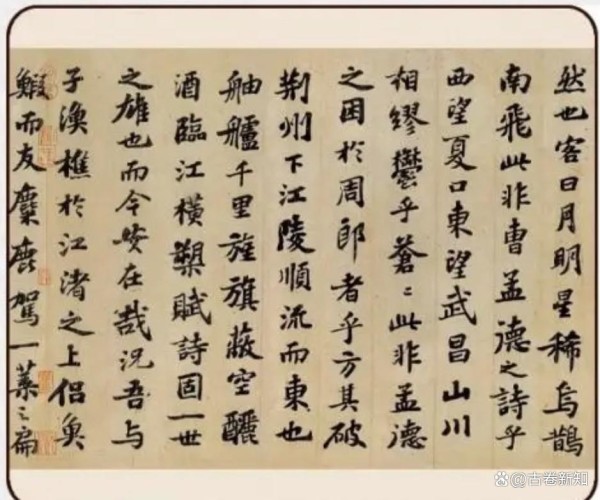 然也客曰月明星稀烏鵲
南飛此非曹孟德之詩乎
西望夏口東望武昌山川
相繆鬱乎蒼〻此非孟德
之困於周郎者乎方其破
荆州下江陵順流而東也
舳艫千里旌旗蔽空釃
酒臨江橫槊賦詩固一世
之雄也而今安在哉況吾與
子漁樵於江渚之上侶魚
鰕而友麋鹿駕一葉之扁
@古卷新知